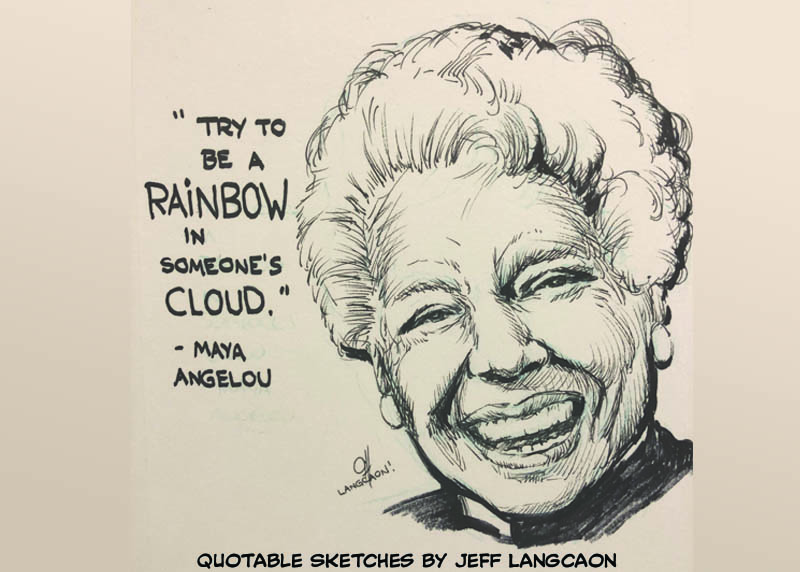 " TRY TO
BE A
RAiNBOW
IN
SOMEONE'S
CLOUD."
- MAYA
ANGELOU
LANGCAON!
QUOTABLE SKETCHES BY JEFF LANGCAON